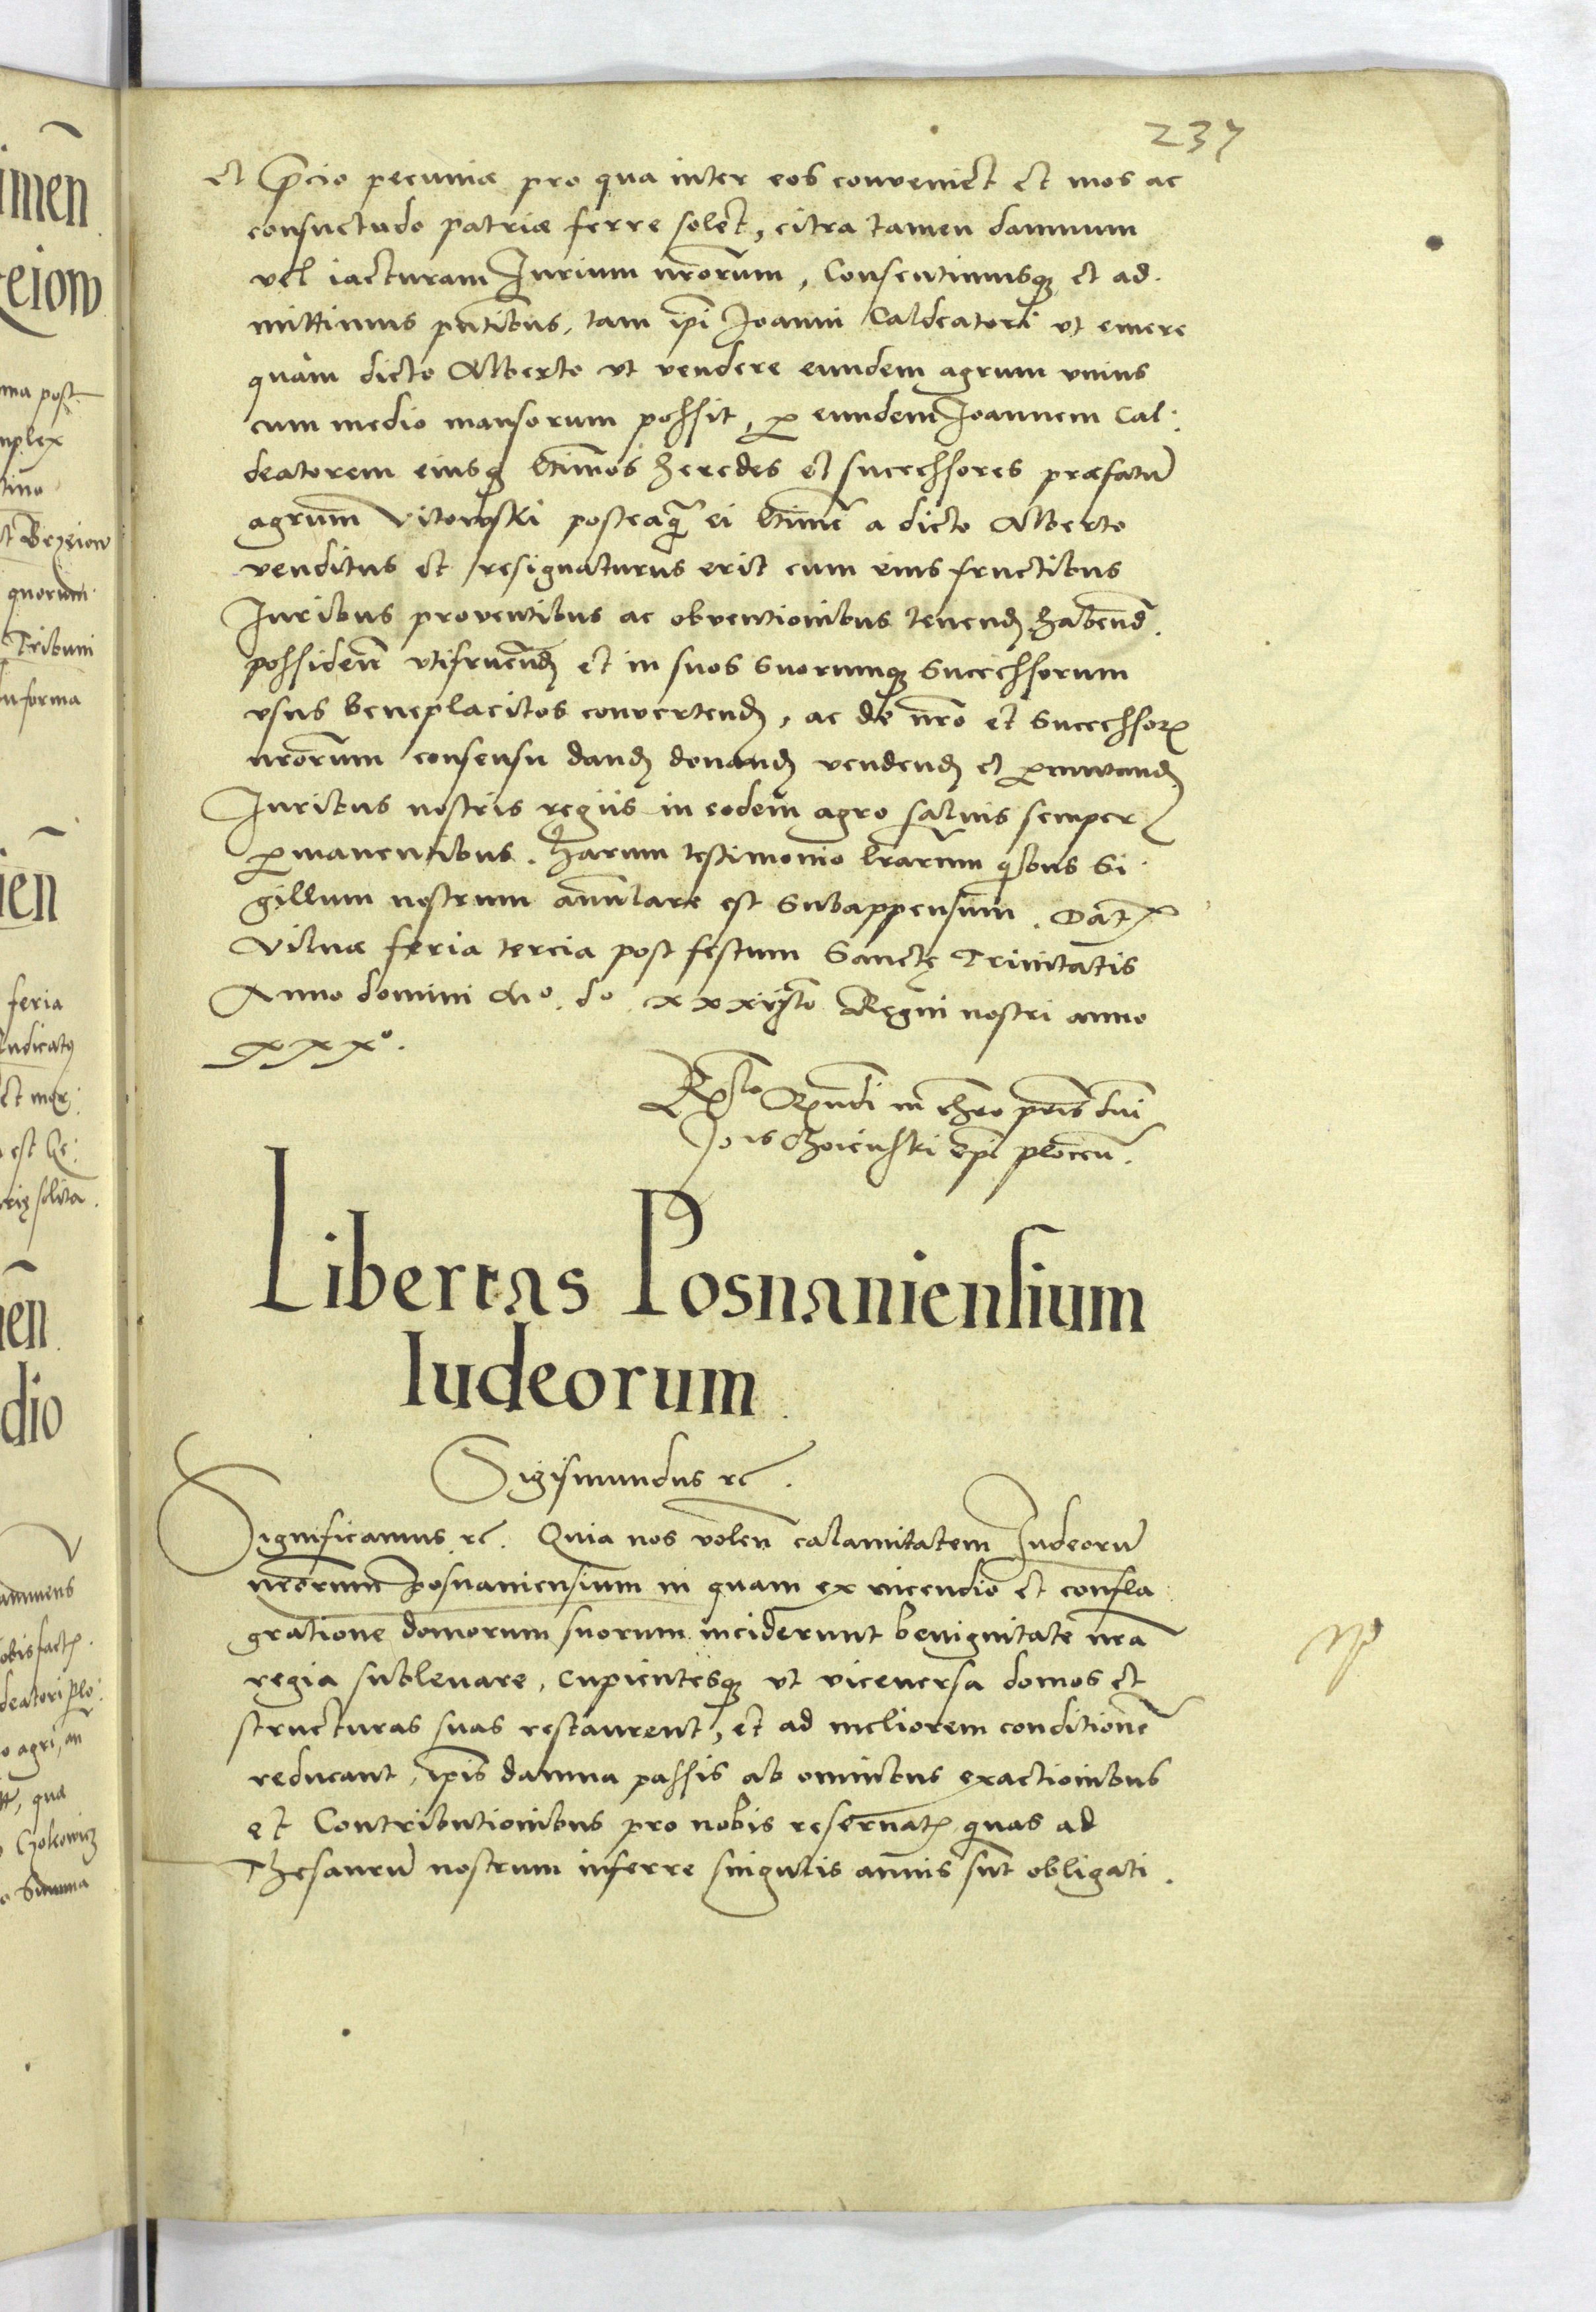 237
et p̄cio pecuniæ pro qua inter eos convenient et mos ac
consuetudo patriæ ferre solent, citra tamen damnum
vel iacturam Jurium nr̄orum, Consentimusq; et ad-
mittimus pn̄tibus, tam ip̄i Joanni Caldeatori ut emere
quàm dicto Alberto ut vendere eundem agrum unius
cum medio mansorum possit, p eundem Joannem Cal-
deatorem eiusq; ltīmos heredes et successores præfatū
agrum Vitowski posteaq̄ ei ltīme a dicto Alberto
venditus et resignaturus erit cum eius fructibus
Juribus proventibus ac obventionibus tenend habend.
possiden̄ utifruend et in suos suorumq; Successorum
usus beneplacitos convertend, ac de nr̄o et Successorꝝ
nr̄orum consensu dand donand vendend et pmutand
Juribus nostris regiis in eodem agro salvis semper
pmanentibus. Harum testimonio lr̄arum quibus Si-
gillum nostrum annulare est subappensum. Datꝝ
Vilnæ feria tercia post festum Sanctę Trinitatis
Anno domini Mo. do. xxxvjto Regni nostri anno
xxxo.
Rndi in chro pr̄is dni
Jois Choienski Ep̄i plocen̄.
Libertas Posnaniensium
Iudeorum
Sigismundus rc.
Significamus rc. Quia nos volen̄ calamitatem Judeorū
nr̄orum Posnaniensium in quam ex incendio et confla-
gratione domorum suorum inciderunt benignitate nr̄a
regia sublevare, cupientesq; ut viceversa domos et
structuras suas restaurent, et ad meliorem conditionē
reducant, ip̄is damna passis ab omnibus exactionibus
et Contributionibus pro nobis reservatꝝ quas ad
Thesaurū nostrum inferre singulis annis sūt obligati.